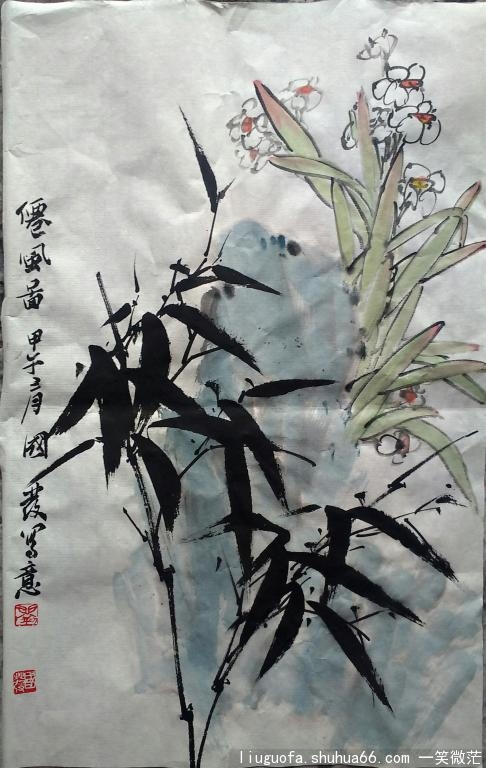 僊風啚 甲午月 國發寫意
liuguofa.shuhua66.com 一笑微茫